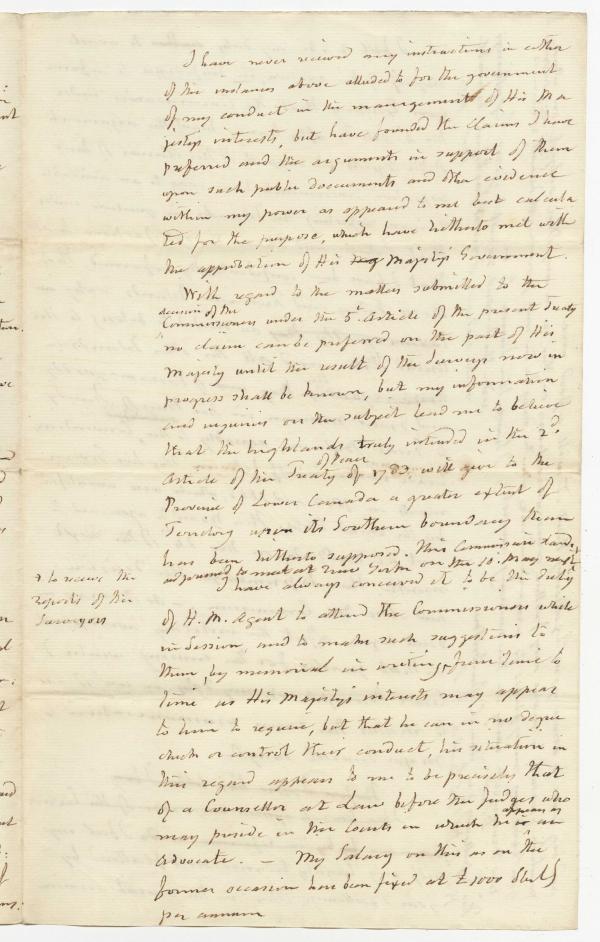 I have never received any instructions in either
of the instances above alluded to for the government
of my conduct in the management of His Ma
jestys interests, but have founded the claims I have
preferred and the arguments in support of them
upon such public documents and other evidence
within my power as appeared to me best calcula
ted for the purpose, which have hitherto met with
the approbation of His Majesty's Government.
With regard to the matters submitted to the
decision of the
Commissioners under the 5th Article of the present Treaty
no claim can be preferred on the part of His
Majesty until the result of the surveys now in
progress shall be known, but my information
and inquiries on the subject lead me to believe
that the highlands truly intended in the 2d
of Peace
Article of the Treaty of 1783. will give to the
Province of Lower Canada a greater extent of
Territory upon it's Southern boundary than
has been hitherto supposed. This Commission stands
adjourned to meet at New York on the 10. May next
to receive the
reports of the
Surveyors
I have always conceived it to be the duty
of H.M. Agent to attend the Commissioners while
in Session, and to make such suggestions to
them, by memorial in writing, from time to
time as His Majesty's interests may appear
to him to require, but that he can in no degree
check or control their conduct, his situation in
this regard appears to me to be precisely that
of a Counsellor at Law before the Judges who
appears as
may preside in the Courts in which he is an
Advocate. — My Salary on this as on the
former occasion have been fixed at £1000 Sterlg
per annum